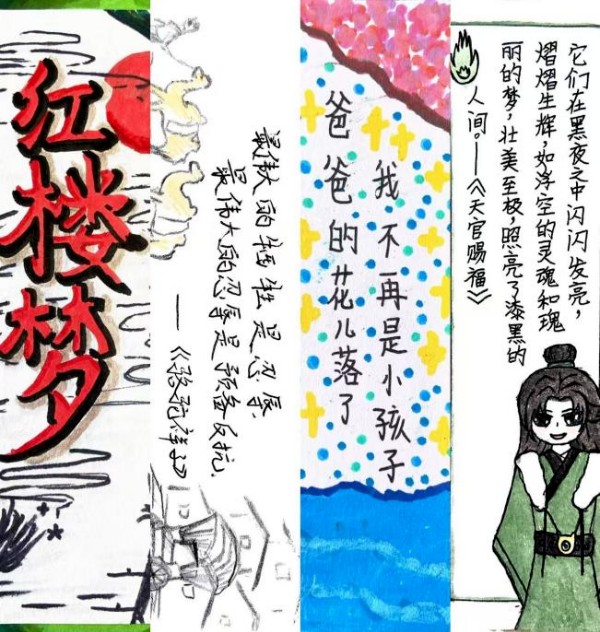 红楼梦
最伟大的牺牲是忍辱,
最伟大的忍辱是预备反抗.
——《骆驼祥子》
爸爸的花儿落了
我不再是小孩子
它们在黑夜之中闪闪发亮,
熠熠生辉,如浮空的灵魂和瑰
丽的梦,壮美至极,照亮了漆黑的
人间。—《天官赐福》